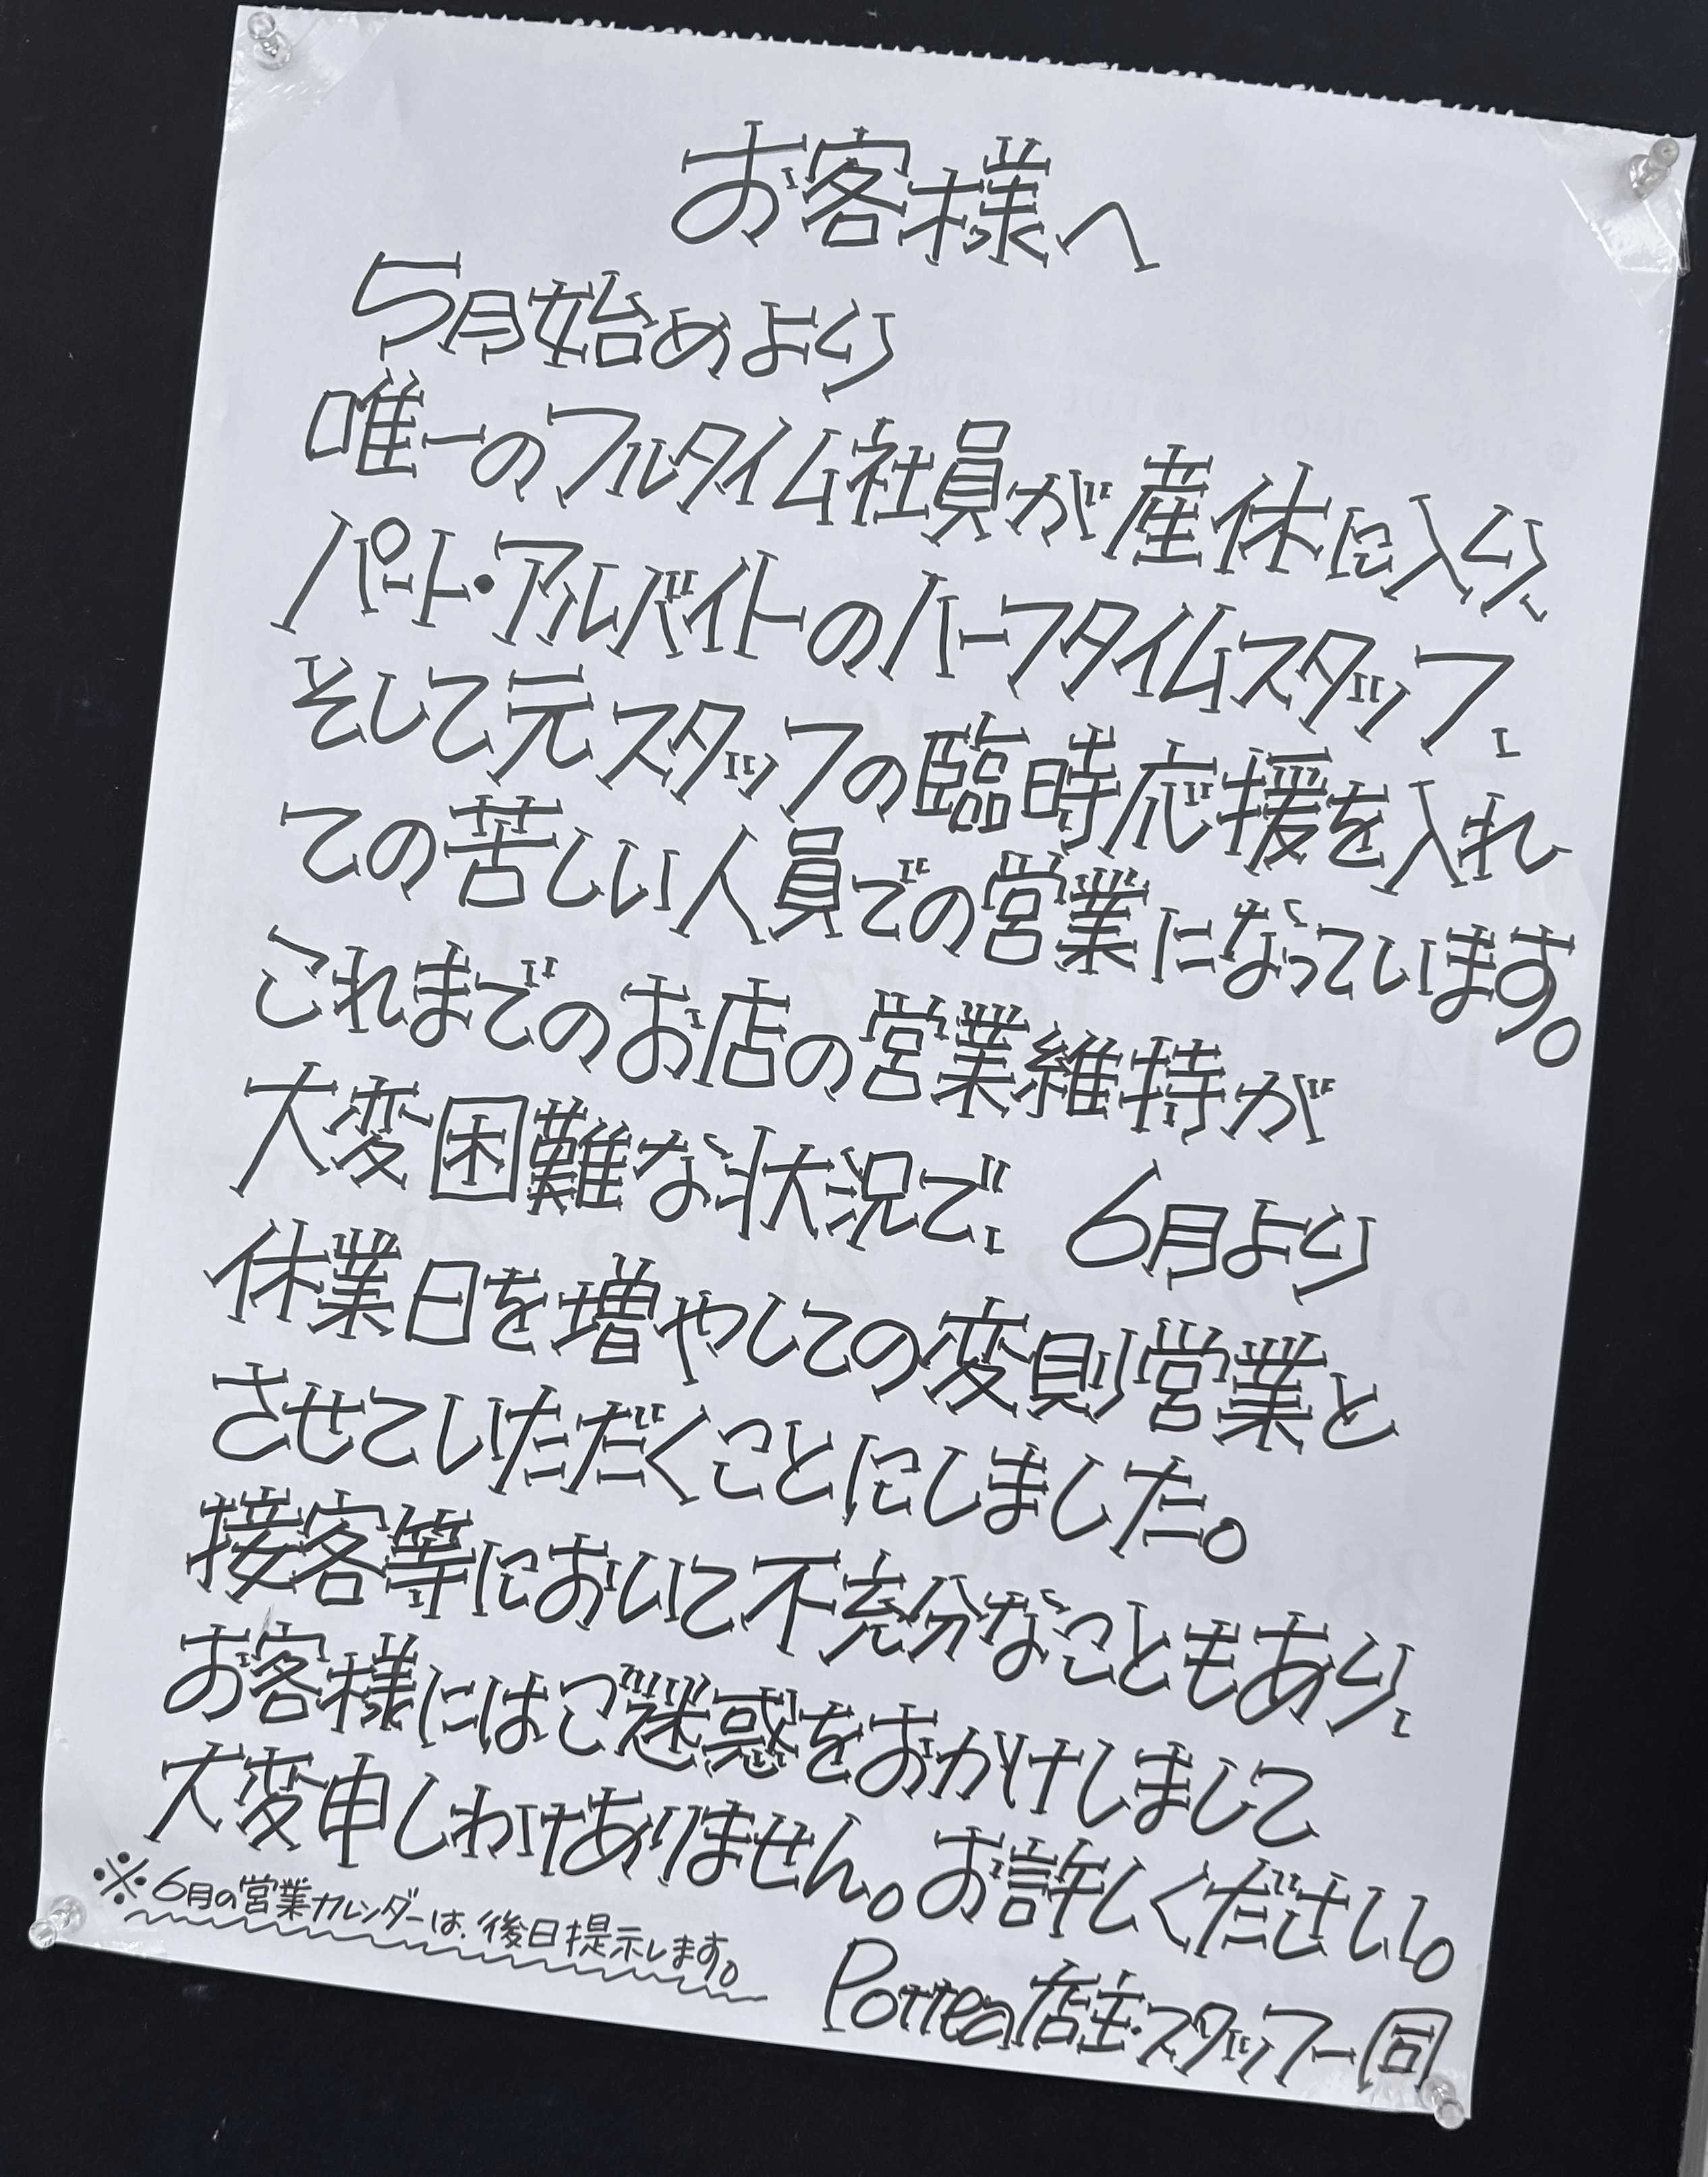 お客様へ
5月始めより
唯一のフルタイム社員が産休に入り、
パート・アルバイトのハーフタイムスタッフ、
そして元スタッフの臨時応援を入れ
ての苦しい人員での営業になっています。
これまでのお店の営業維持が
大変困難な状況で、 6月より
休業日を増やしての変則営業と
させていただくことにしました。
接客等において不充分なこともあり、
お客様にはご迷惑をおかけしまして
大変申しわけありません。お許しください。
※6月の営業カレンダーは、後日提示します。
Pottea店主・スタッフ一同